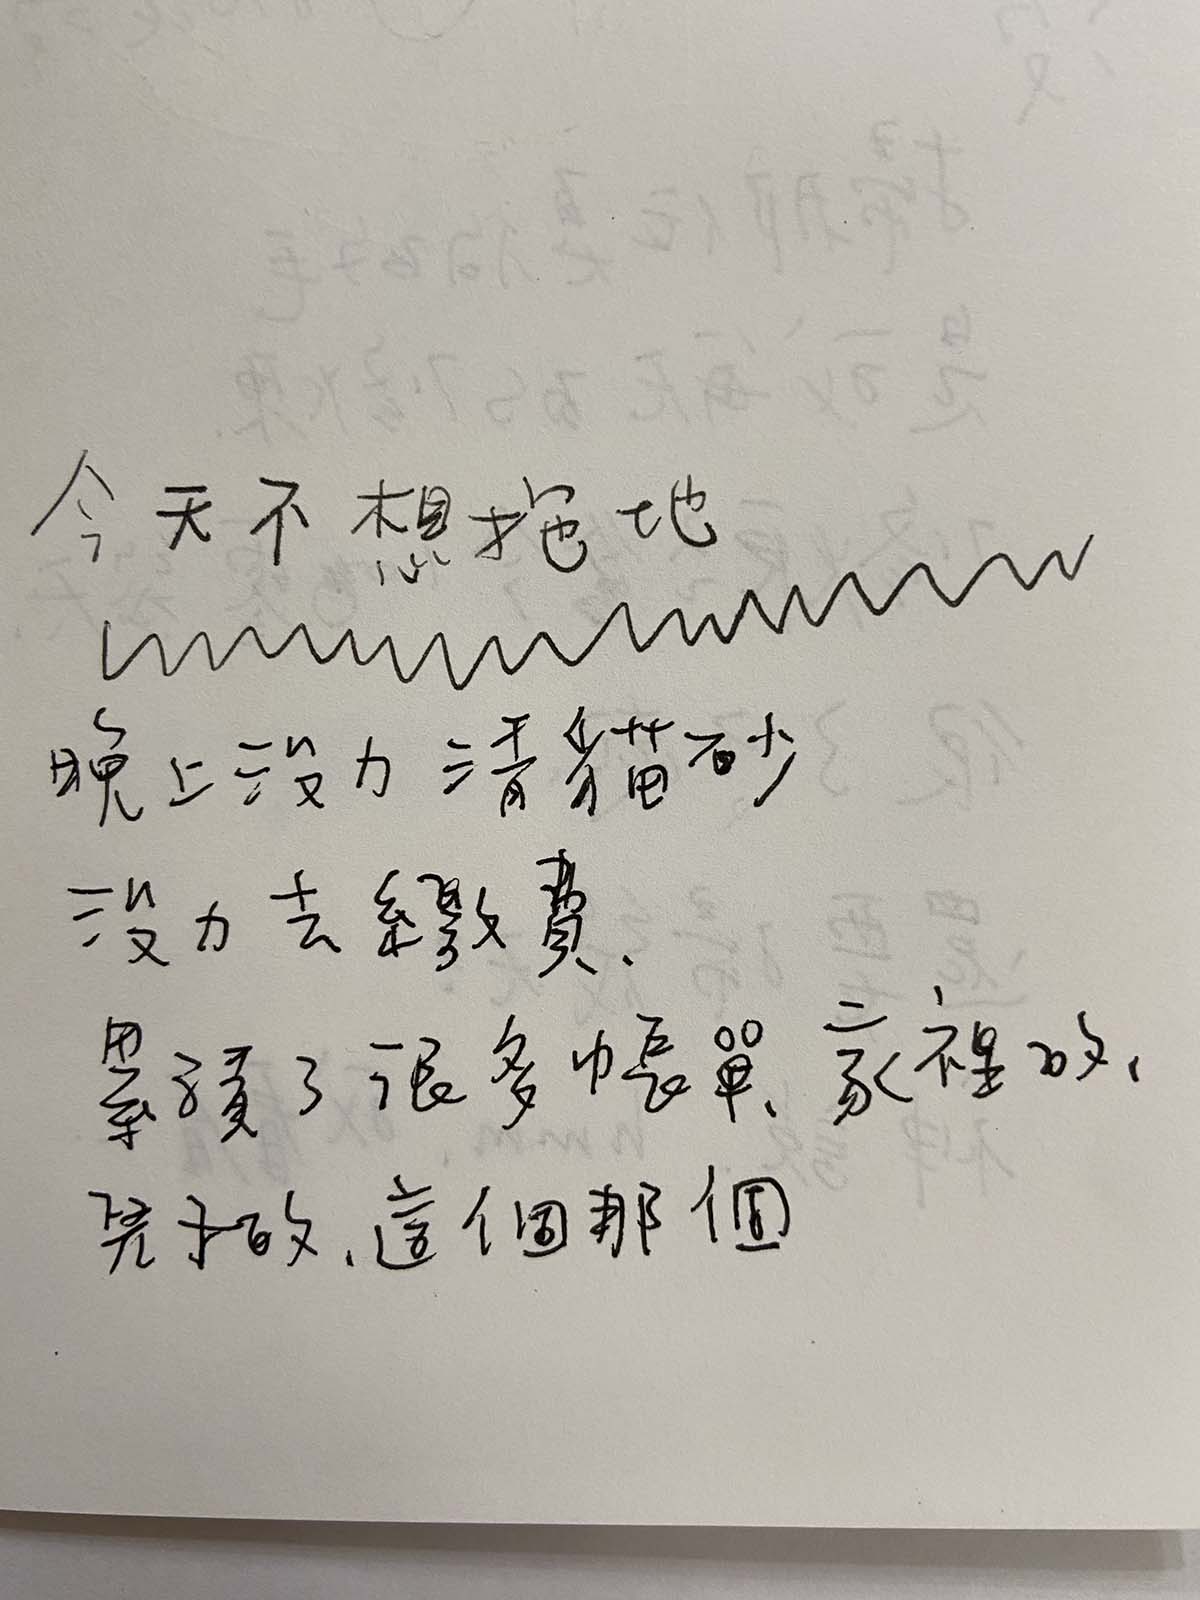 今天不想拖地
晚上沒力清貓砂
沒力去繳費.
累積了很多帳單、家裡的、
兒子的、這個那個